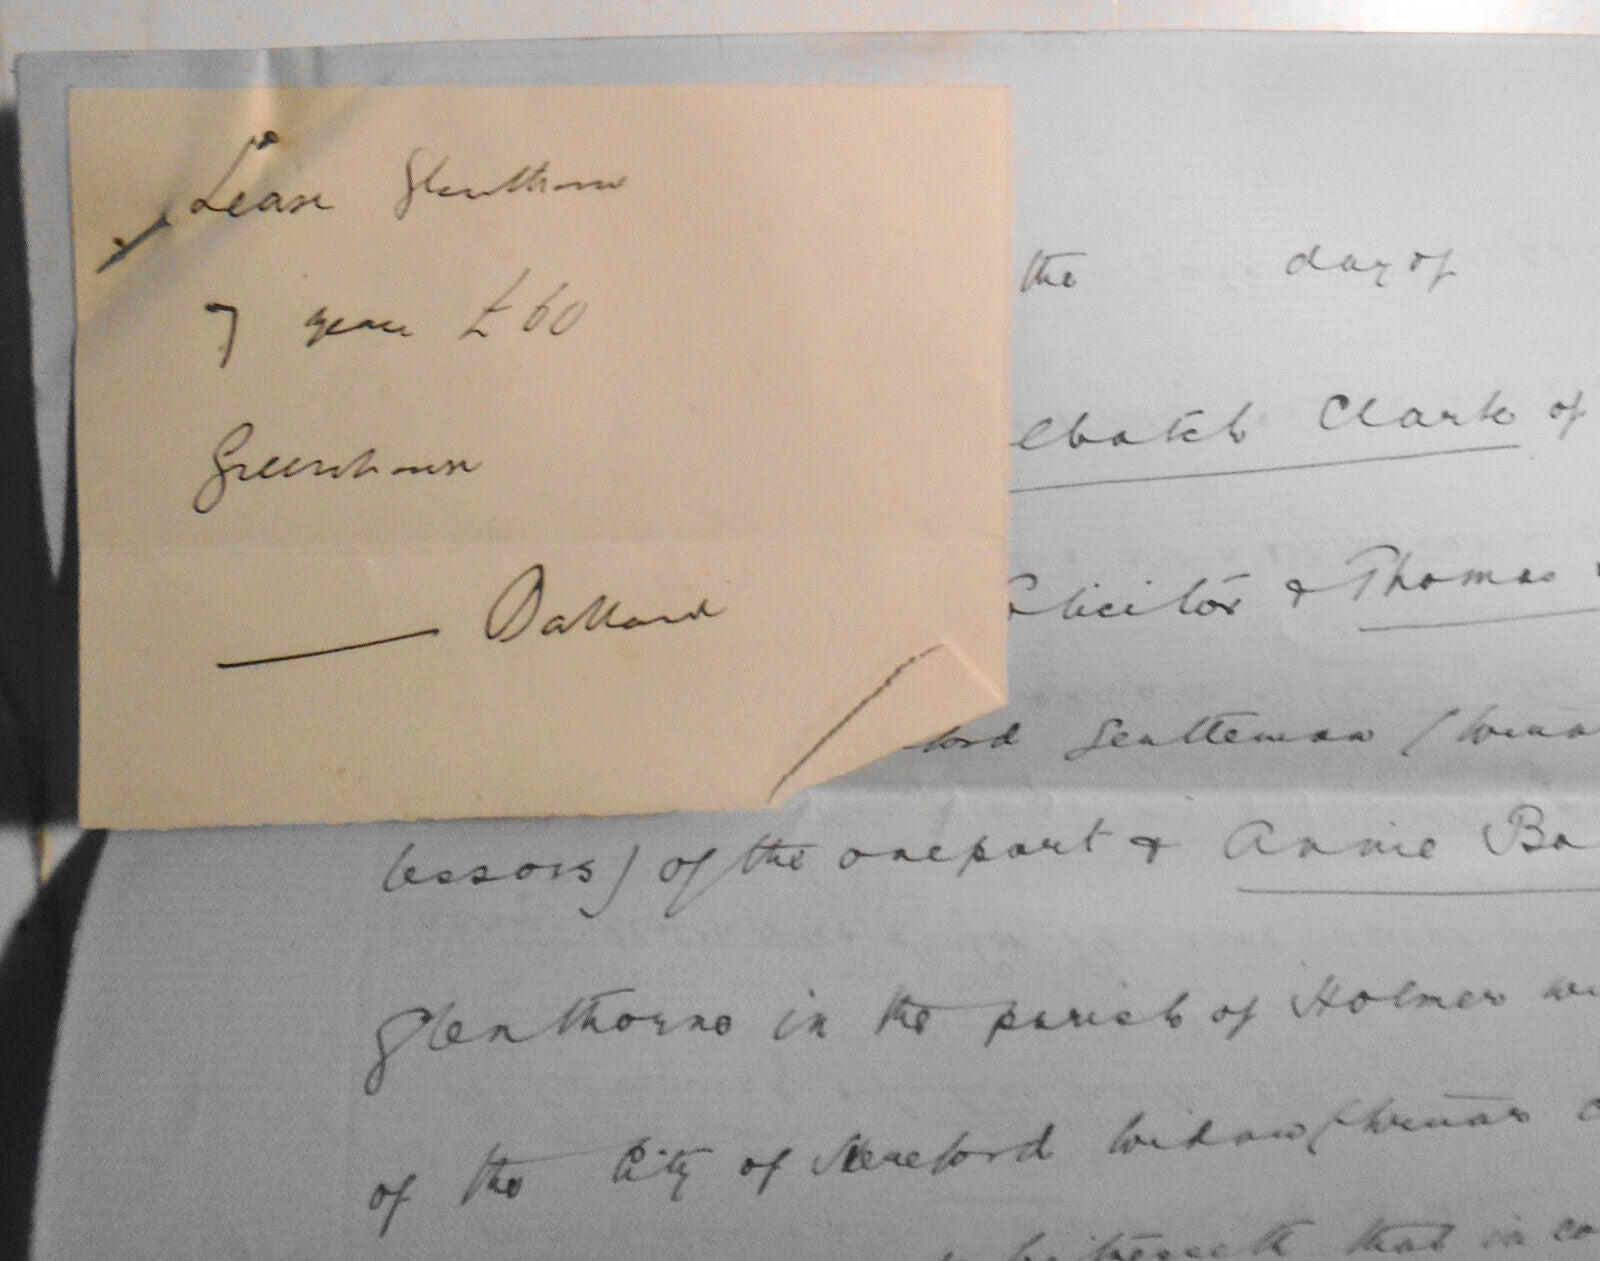 Lease Glenthorne
7 years £60
Greenhouse
Ballard
the day of
Clark of
Solicitor & Thomas
ford Gentleman (herein
lessors) of the one part & Annie Ba
Glenthorne in the parish of Holmer
of the City of Hereford Widow (herein
witnesseth that in co